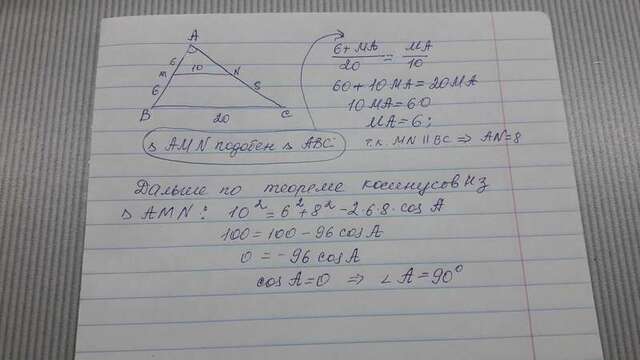 A
6
10
M
N
6
8
B
20
C
6+MA/20 = MA/10
60+10MA=20MA
10MA=60
MA=6;
т.к. MN || BC ⇒ AN=8
▵ AMN подобен ▵ ABC
Дальше по теореме косинусов из
▵ AMN: 10² = 6² + 8² - 2·6·8·cos A
100 = 100 - 96 cos A
0 = - 96 cos A
cos A = 0 ⇒ ∠ A = 90°